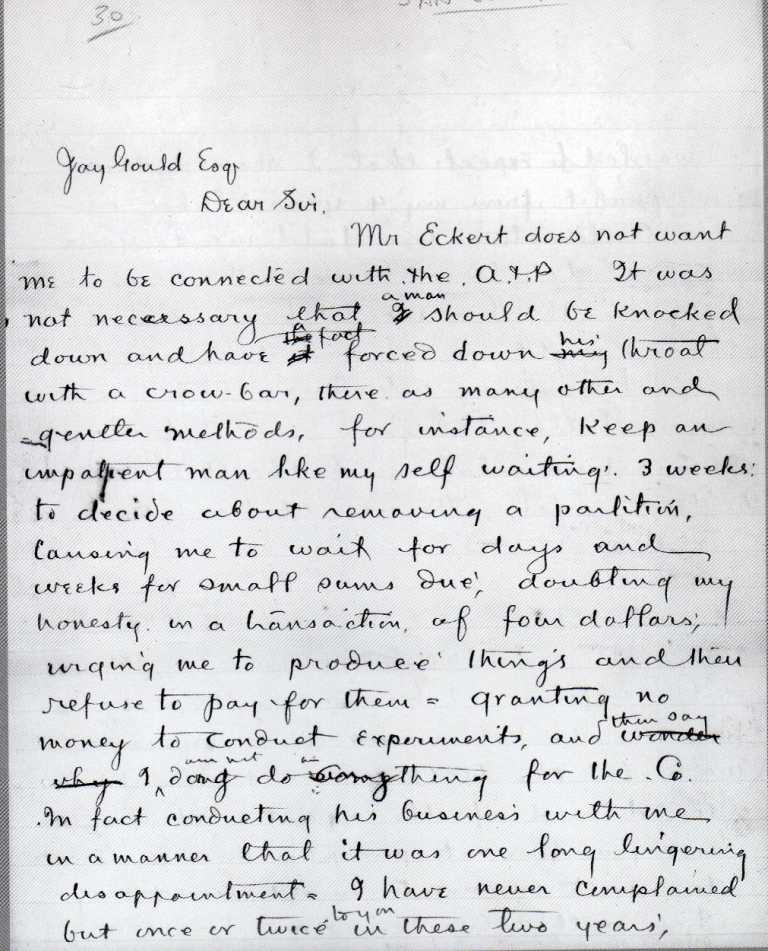 30
Jay Gould Esq
Dear Sir.
Mr Eckert does not want
me to be connected with the A.&P It was
a man
not necessary that I should be knocked
a fact
the
down and have it forced down my his throat
with a crow-bar, there as many other and
gentler methods, for instance, Keep an
impatient man like my self waiting. 3 weeks
to decide about removing a partition,
Causing me to wait for days and
weeks for small sums due, doubting my
honesty in a transaction of four dollars;
urging me to produce things and then
refuse to pay for them = granting no
then say
money to conduct experiments, and wonder
am not an
why I doing do anything for the Co.
In fact conducting his business with me
in a manner that it was one long lingering
disappointment = I have never complained
to you
but once or twice in these two years,